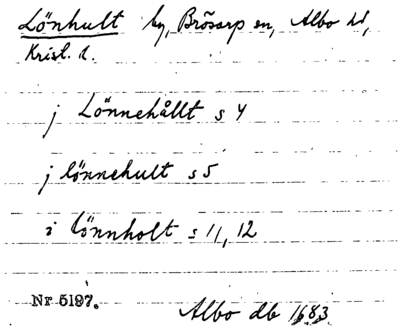 Lönhult by, Brösarp sn, Albo hd,
Krist. l.
j Lönnehållt s 4
j lönnehult s 5
i lönnholt s 11, 12
Nr 5197.
Albo db 1683